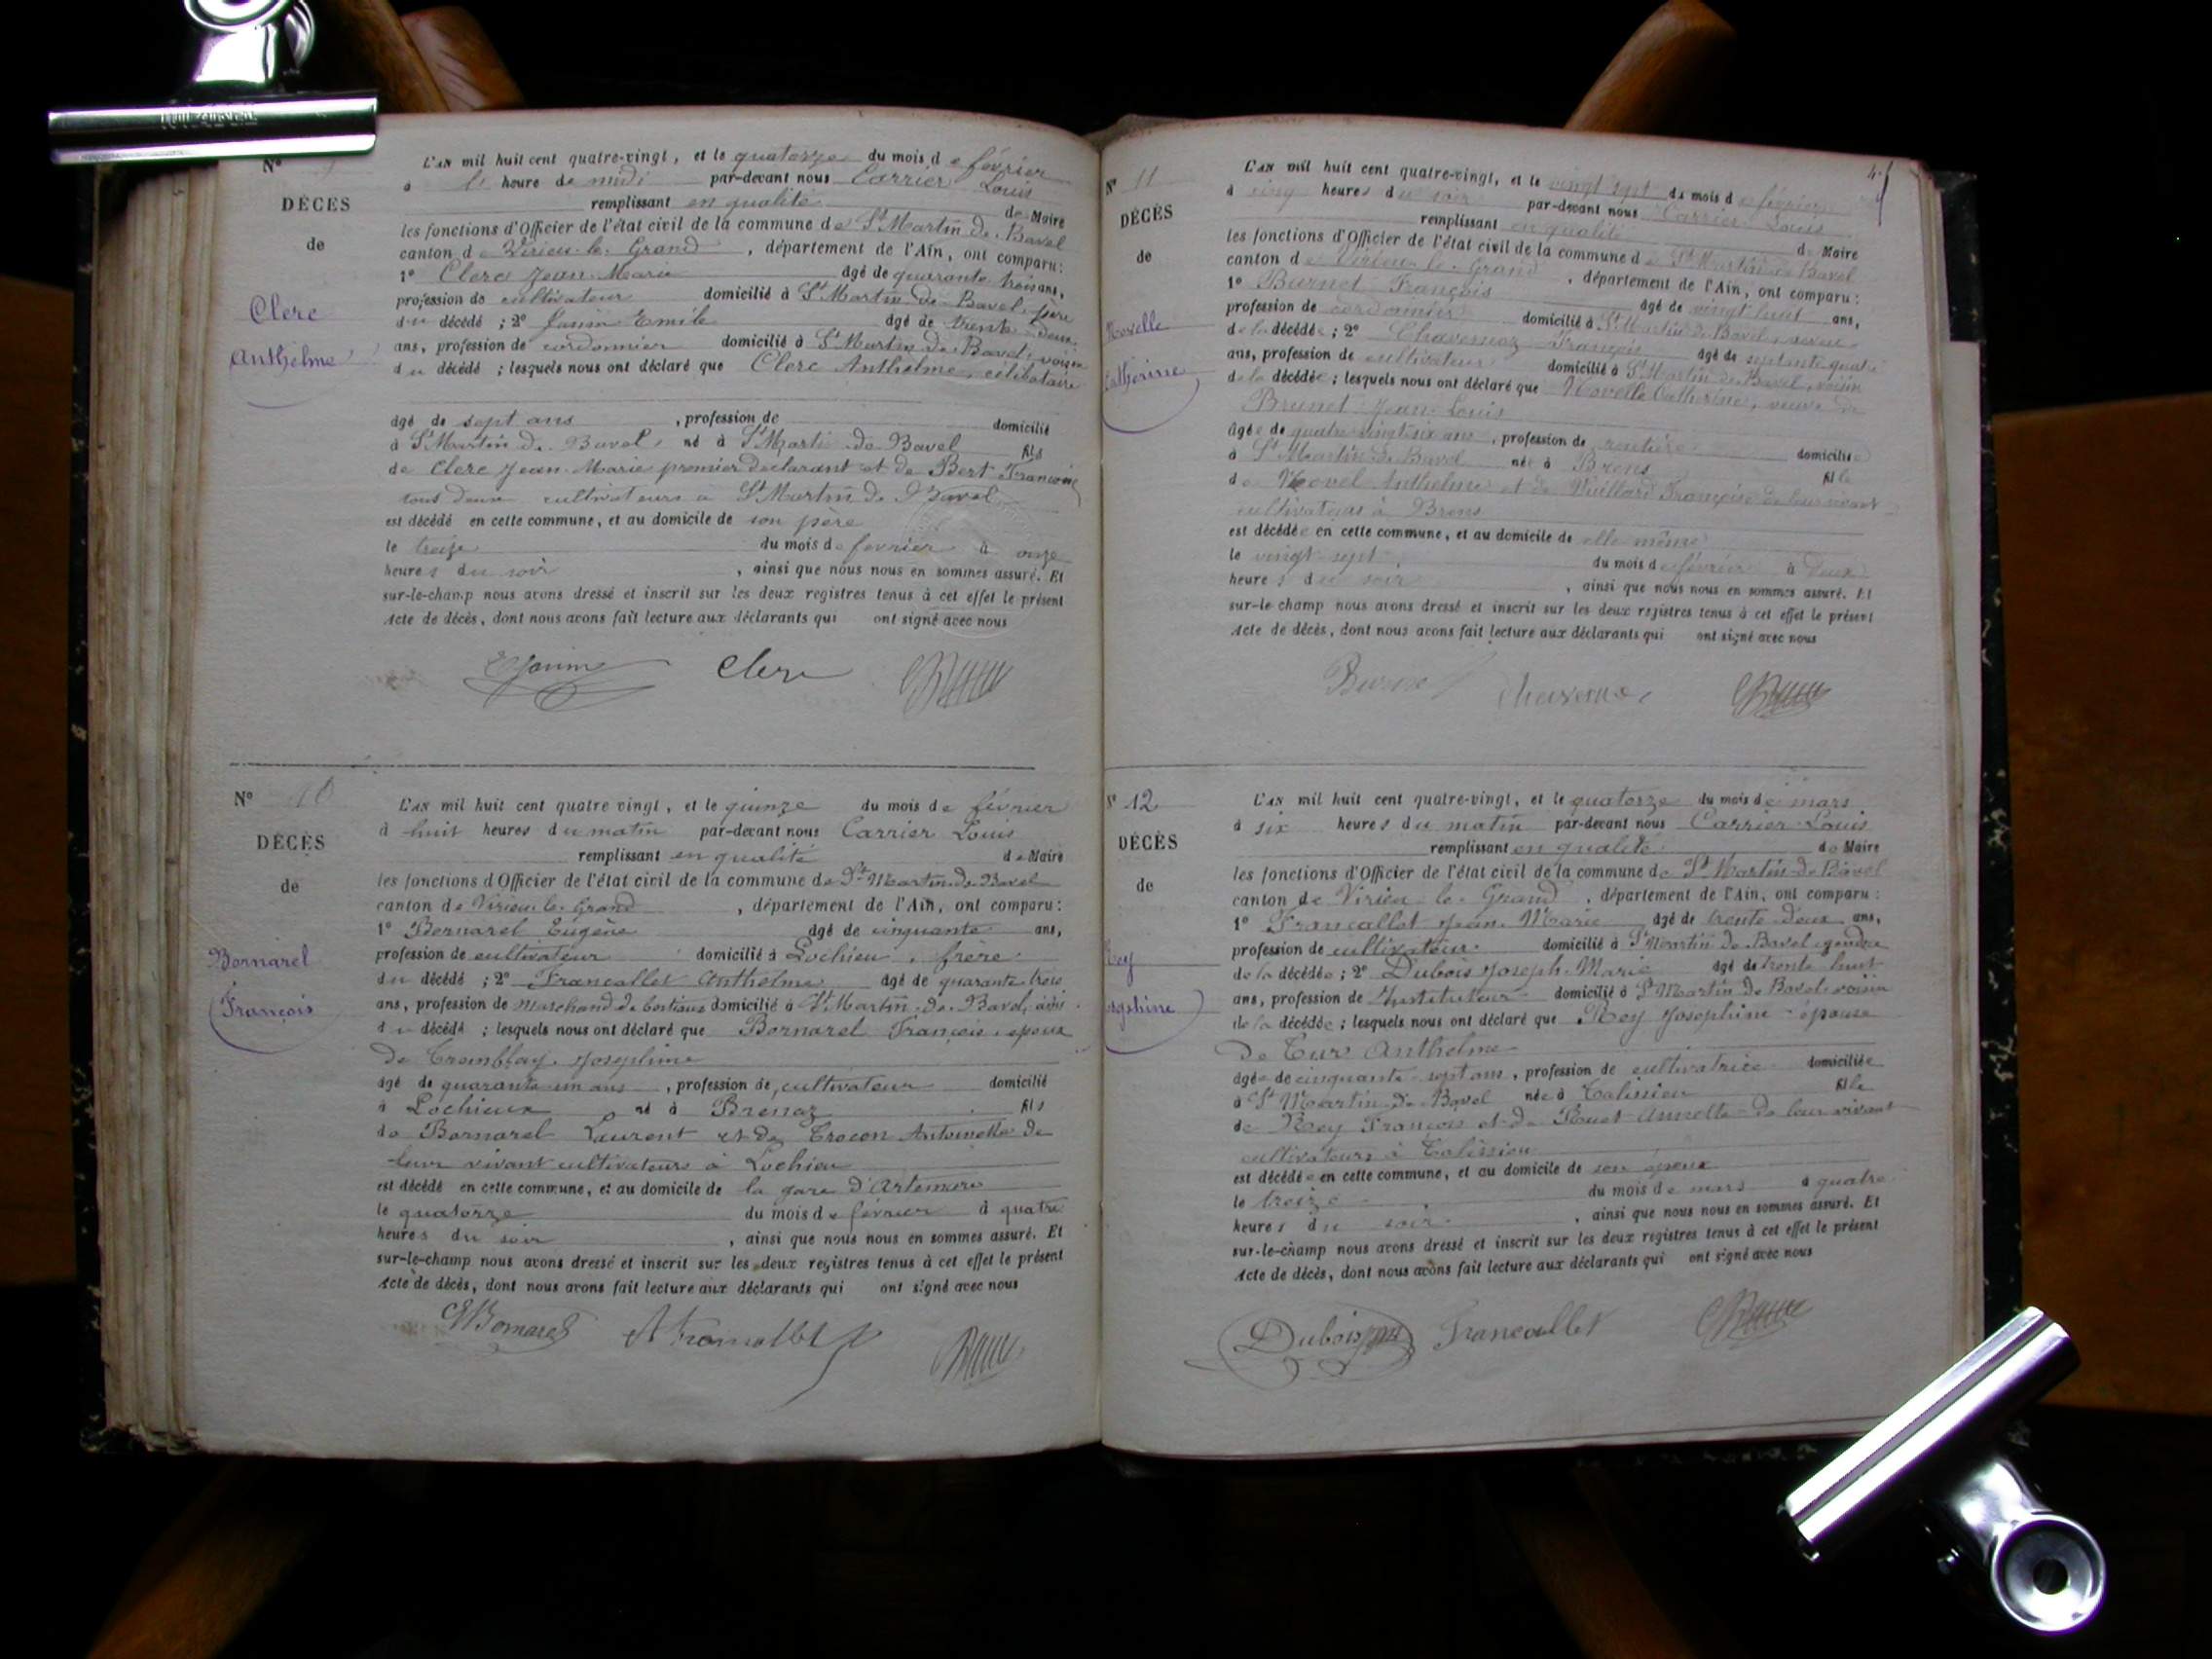 N° 9
DÉCÈS
de
Clerc
Anthelme
L'AN mil huit cent quatre-vingt, et le quatorze du mois de février
à l' heure de midi par-devant nous Carrier Louis
remplissant en qualité de Maire
les fonctions d'Officier de l'état civil de la commune de St Martin de Bavel
canton de Virieu le Grand, département de l'Ain, ont comparu:
1° Clerc Jean Marie âgé de quarante trois ans,
profession de cultivateur domicilié à St Martin de Bavel, père
du décédé ; 2° Janin Emile âgé de trente deux
ans, profession de cordonnier domicilié à St Martin de Bavel, voisin
du décédé ; lesquels nous ont déclaré que Clerc Anthelme, célibataire
âgé de sept ans, profession de domicilié
à St Martin de Bavel, né à St Marti de Bavel fils
de Clerc Jean Marie premier déclarant et de Bert Françoise
tous deux cultivateurs à St Martin de Bavel
est décédé en cette commune, et au domicile de son père
le treize du mois de fevrier à onze
heures du soir, ainsi que nous nous en sommes assuré. Et
sur-le-champ nous avons dressé et inscrit sur les deux registres tenus à cet effet le présent
acte de décès, dont nous avons fait lecture aux déclarants qui ont signé avec nous
EJanin Clerc
N° 10
DÉCÈS
de
Bornarel
François
L'AN mil huit cent quatre vingt, et le quinze du mois de février
à huit heures du matin par-devant nous Carrier Louis
remplissant en qualité de Maire
les fonctions d'Officier de l'état civil de la commune de St Martin de Bavel
canton de Virieu le Grand, département de l'Ain, ont comparu:
1° Bornarel Eugène âgé de cinquante ans,
profession de cultivateur domicilié à Lochieu, frère
du décédé ; 2° Francallet Anthelme âgé de quarante trois
ans, profession de marchand de bestiaux domicilié à St Martin de Bavel, ami
du décédé ; lesquels nous ont déclaré que Bornarel François, époux
de Tremblay Josephine
âgé de quarante un ans, profession de cultivateur domicilié
à Lochieux né à Brenaz fils
de Bornarel Laurent et de Trocon Antoinette de
leur vivant cultivateurs à Lochieu
est décédé en cette commune, et au domicile de la gare d'Artemare
le quatorze du mois de février à quatre
heures du soir, ainsi que nous nous en sommes assuré. Et
sur-le-champ nous avons dressé et inscrit sur les deux registres tenus à cet effet le présent
acte de décès, dont nous avons fait lecture aux déclarants qui ont signé avec nous
EBornarel A Francallet
N° 11
DÉCÈS
de
Novelle
Catherine
L'AN mil huit cent quatre-vingt, et le vingt sept du mois de février
à cinq heures du soir par-devant nous Carrier Louis
remplissant en qualité de Maire
les fonctions d'Officier de l'état civil de la commune de St Martin de Bavel
canton de Virieu le Grand, département de l'Ain, ont comparu:
1° Burnet François âgé de vingt huit ans,
profession de cordonnier domicilié à St Martin de Bavel,
de la décédée ; 2° François âgé de septante quatre
ans, profession de cultivateur domicilié à St Martin de Bavel, voisin
de la décédée ; lesquels nous ont déclaré que Novelle Catherine, veuve de
Brunet Jean Louis
âgée de quatre vingt six ans, profession de rentière domiciliée
à St Martin de Bavel née à Brens fille
de Novel Anthelme et de Vuillard Françoise de leur vivant
cultivateurs à Brens
est décédée en cette commune, et au domicile de elle même
le vingt sept du mois de février à deux
heures du soir, ainsi que nous nous en sommes assuré. Et
sur-le champ nous avons dressé et inscrit sur les deux registres tenus à cet effet le présent
acte de décès, dont nous avons fait lecture aux déclarants qui ont signé avec nous
N° 12
DÉCÈS
de
Rey
Josephine
L'AN mil huit cent quatre-vingt, et le quatorze du mois de mars
à six heures du matin par-devant nous Carrier Louis
remplissant en qualité de Maire
les fonctions d'Officier de l'état civil de la commune de St Martin de Bavel
canton de Virieu le Grand, département de l'Ain, ont comparu:
1° Francallet Jean Marie âgé de trente deux ans,
profession de cultivateur domicilié à St Martin de Bavel, gendre
de la décédée ; 2° Dubois Joseph Marie âgé de trente huit
ans, profession de Instituteur domicilié à St Martin de Bavel, voisin
de la décédée ; lesquels nous ont déclaré que Rey Josephine épouse
de Tur Anthelme
âgée de cinquante sept ans, profession de cultivatrice domiciliée
à St Martin de Bavel née à Talissieu fille
de Rey François et de Annette de leur vivant
cultivateurs à Talissieu
est décédée en cette commune, et au domicile de son époux
le treize du mois de mars à quatre
heures du soir, ainsi que nous nous en sommes assuré. Et
sur-le-champ nous avons dressé et inscrit sur les deux registres tenus à cet effet le présent
acte de décès, dont nous avons fait lecture aux déclarants qui ont signé avec nous
Dubois Francallet